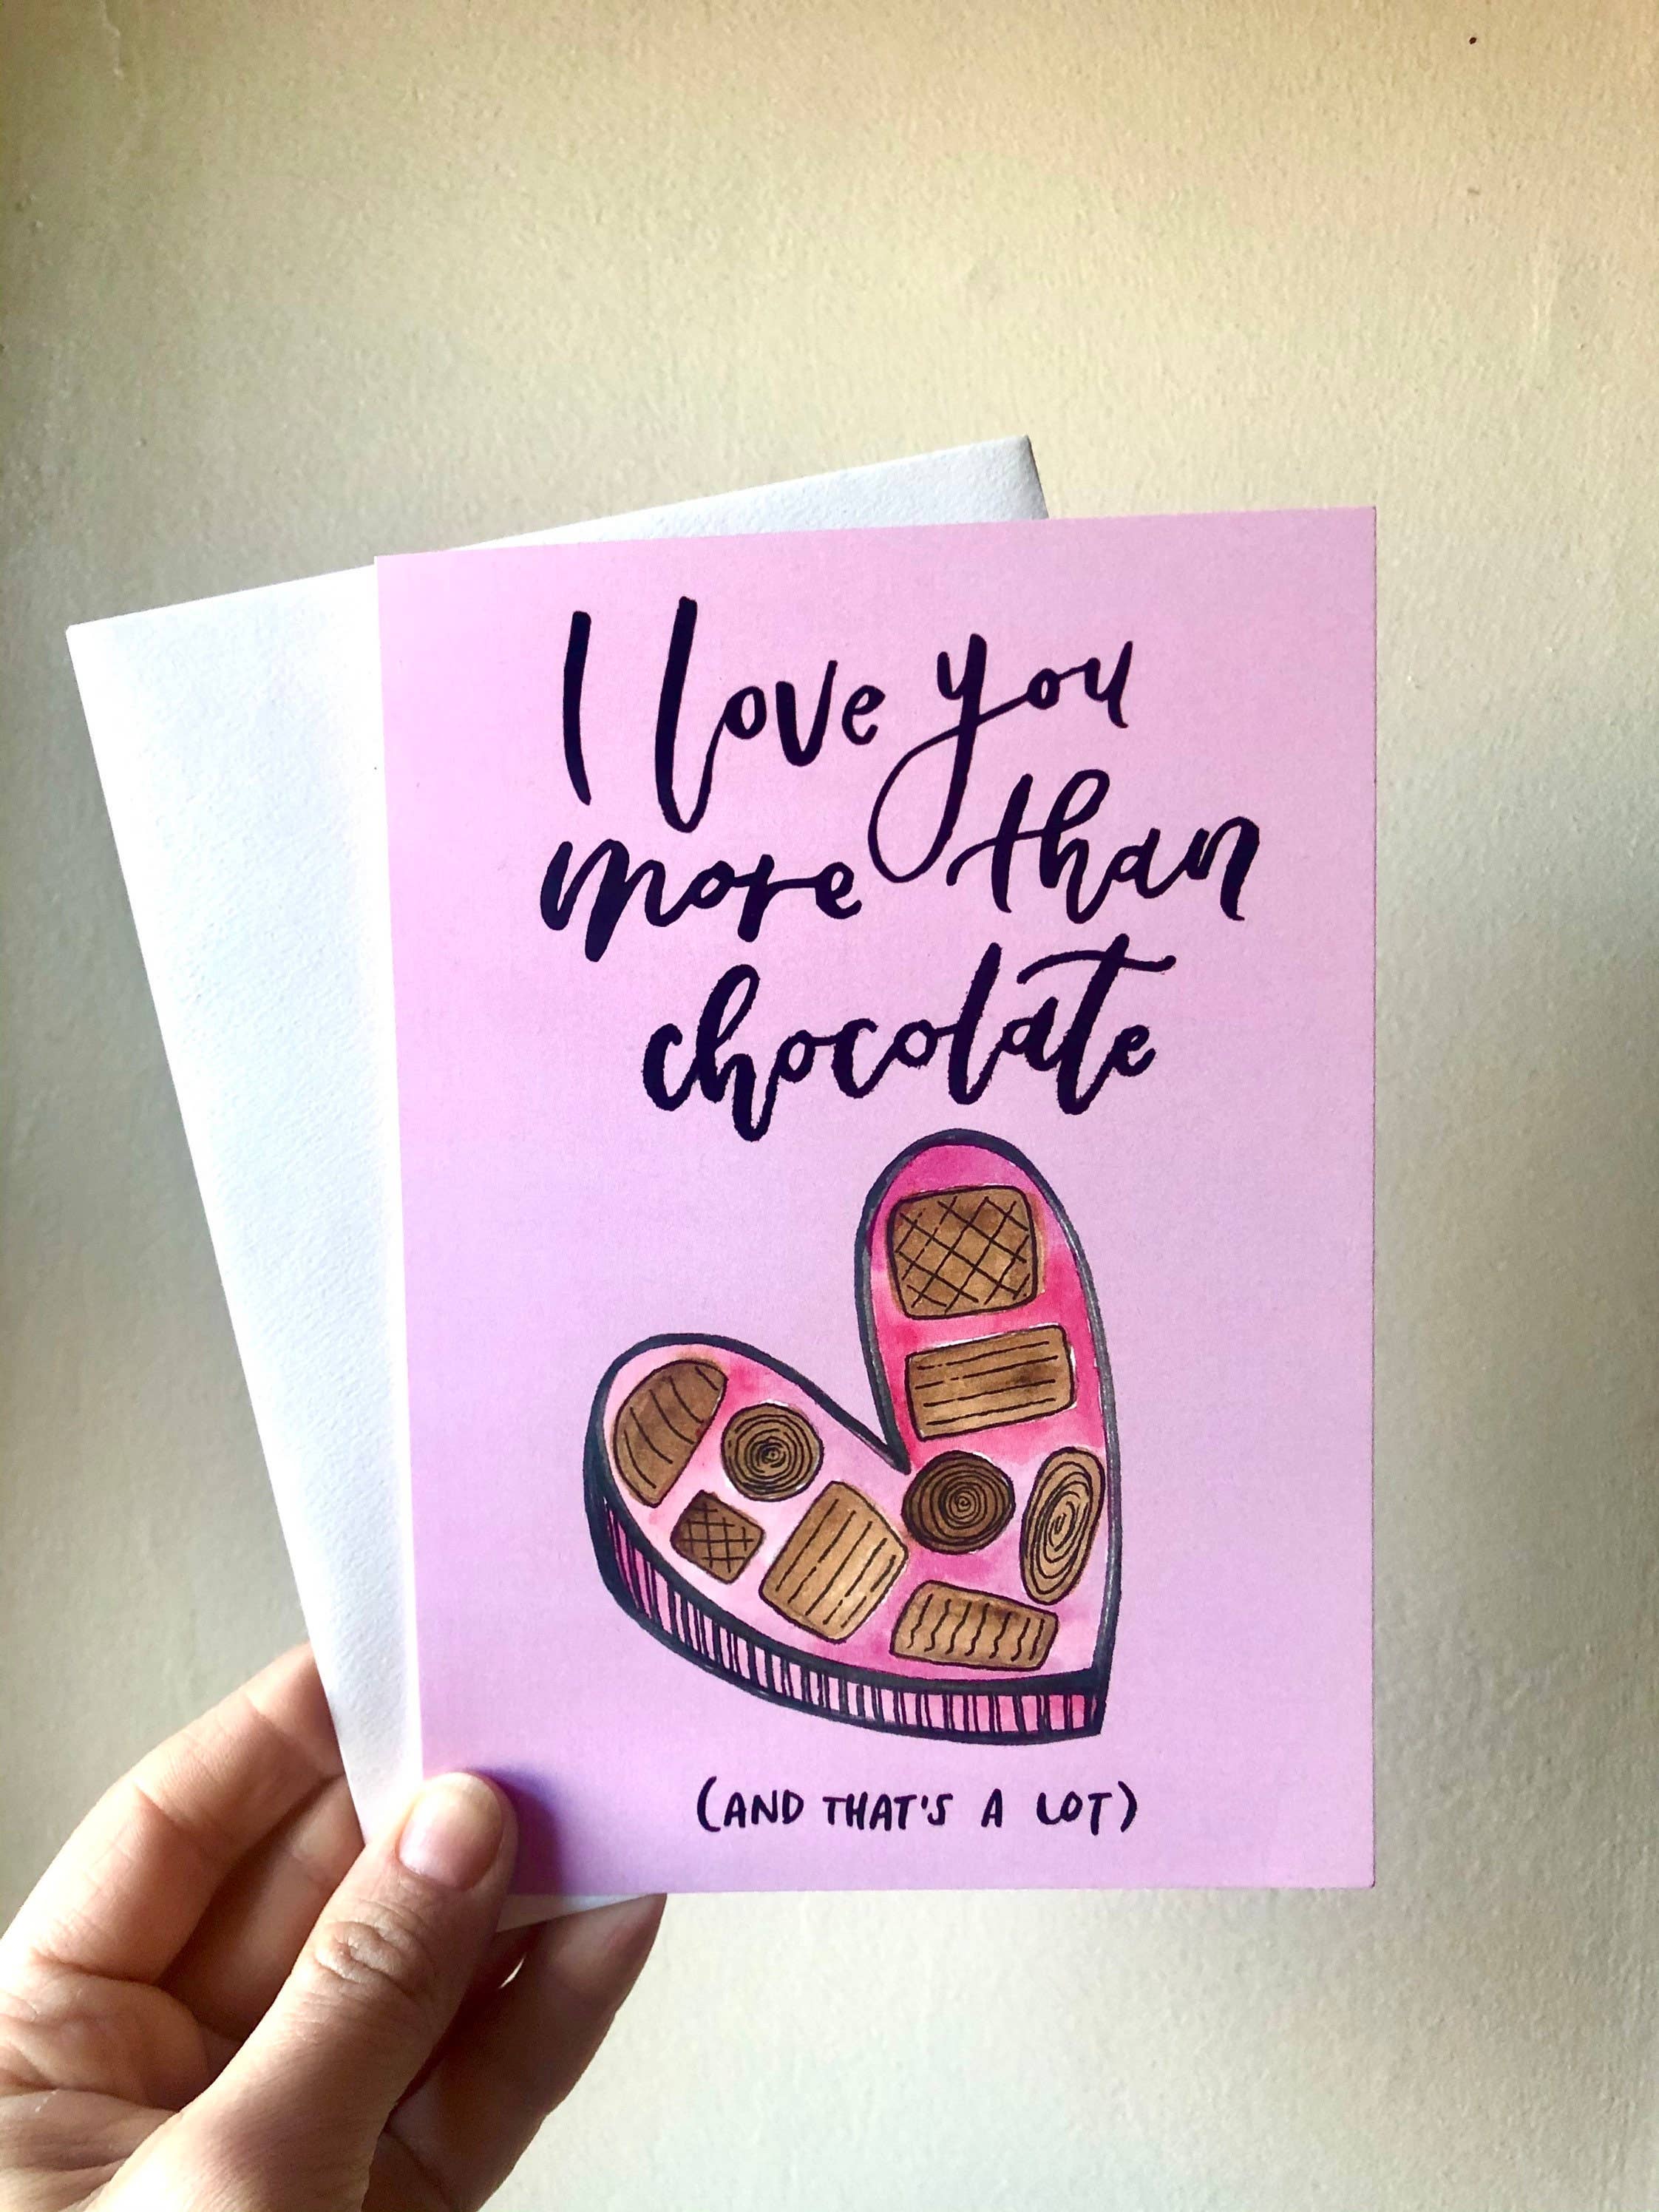 I love you
more than
chocolate
(AND THAT'S A LOT)